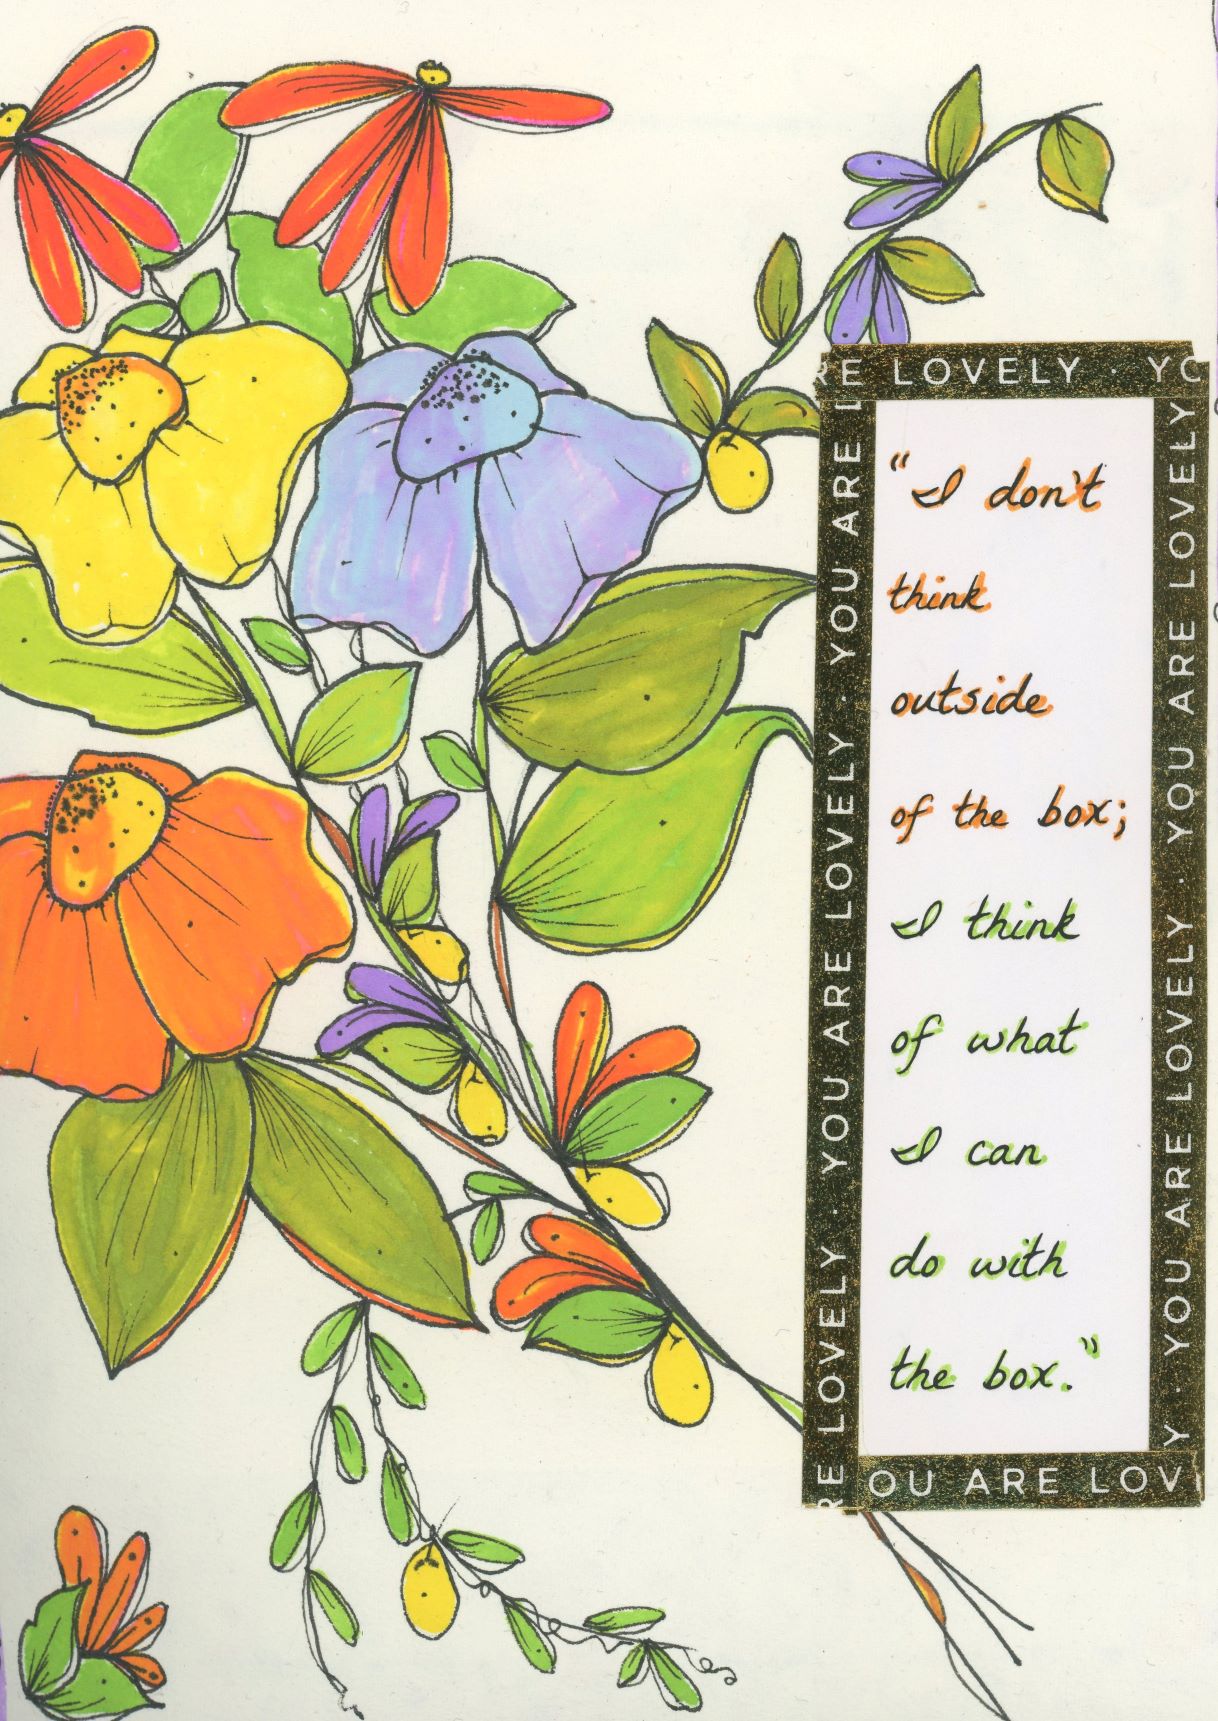 RE LOVELY · YO
"I don't
think
outside
of the box;
I think
of what
I can
do with
the box."
RE LOVELY · YOU ARE LOVELY · YOU ARE LOVELY · YOU ARE L
Y · YOU ARE LOVELY · YOU ARE LOVELY · YOU ARE LOVELY
OU ARE LOV